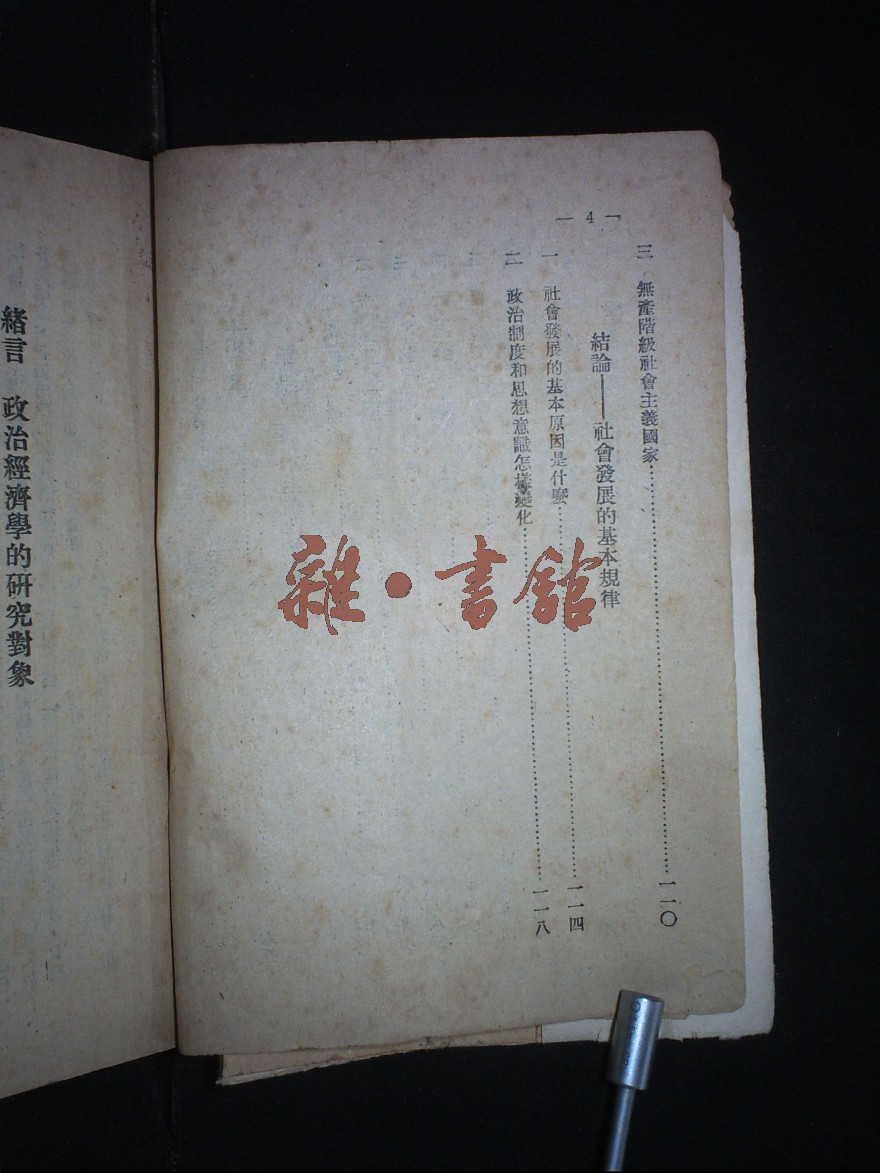 — 4 —
三 無產階級社會主義國家……一一〇
結論——社會發展的基本規律
一 社會發展的基本原因是什麼……一一四
二 政治制度和思想意識怎樣變化……一一八
緒言 政治經濟學的研究對象
雜·書館